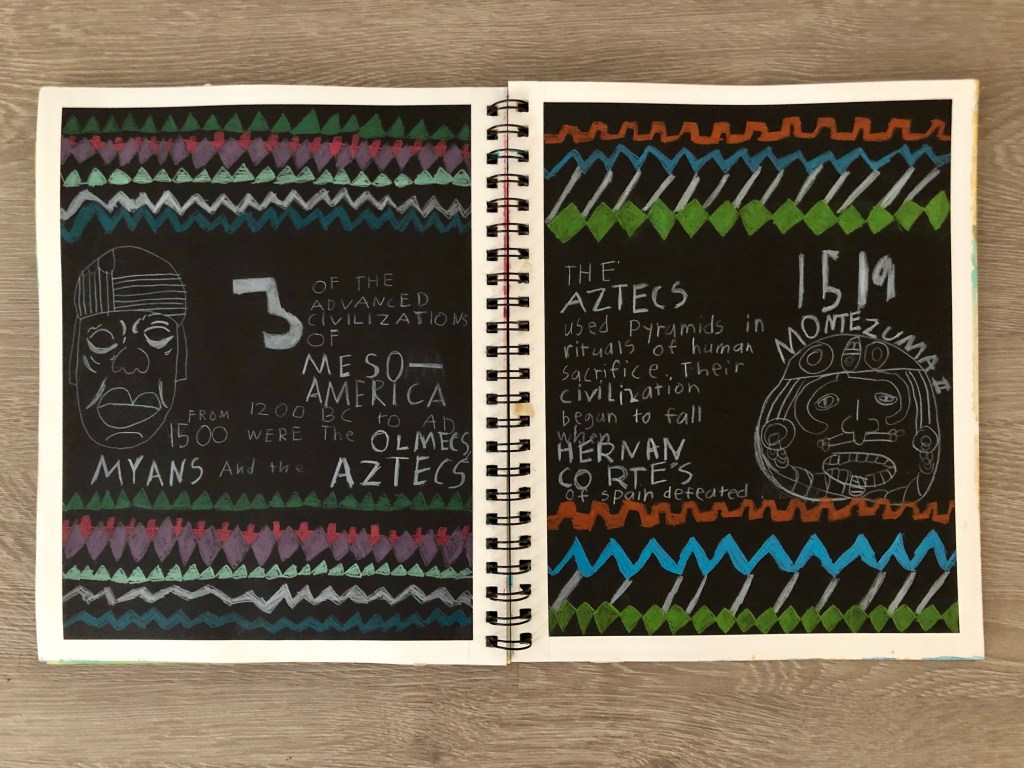 3 OF THE
ADVANCED
CIVILIZATIONS
OF
MESO—
AMERICA
FROM 1200 BC to AD
1500 WERE The OLMECS,
MYANS And the AZTECS
THE
AZTECS
used Pyramids in
rituals of human
sacrifice. Their
civilization
began to fall
when
HERNAN
CORTE'S
of spain defeated
1519
MONTEZUMA II